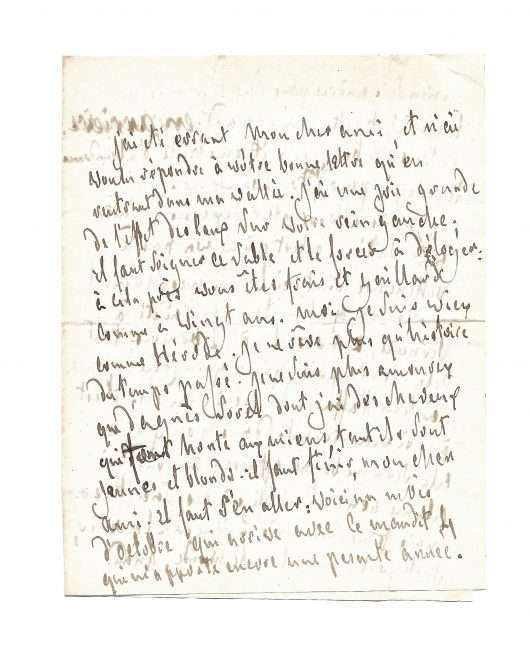 j'ai été errant mon cher ami et n'ai
voulu répondre à votre bonne lettre qu'en
rentrant dans ma vallée. j'ai une joie grande
de l'effet des eaux sur votre rein gauche :
il faut soigner ce sable et le forcer à déloger :
à cela près vous êtes frais et gaillard
comme à vingt ans. moi je suis vieux
comme Hérode. je ne rêve plus qu'histoire
du temps passé. je ne suis plus amoureux
que d'agnès Sorel dont j'ai des cheveux
qui font honte aux miens tant ils sont
jeunes et blonds. il faut finir mon cher
ami. il faut s'en aller : voici un mois
d'octobre qui arrive avec ce maudit 4
qui m'apporte encore une pesante année.